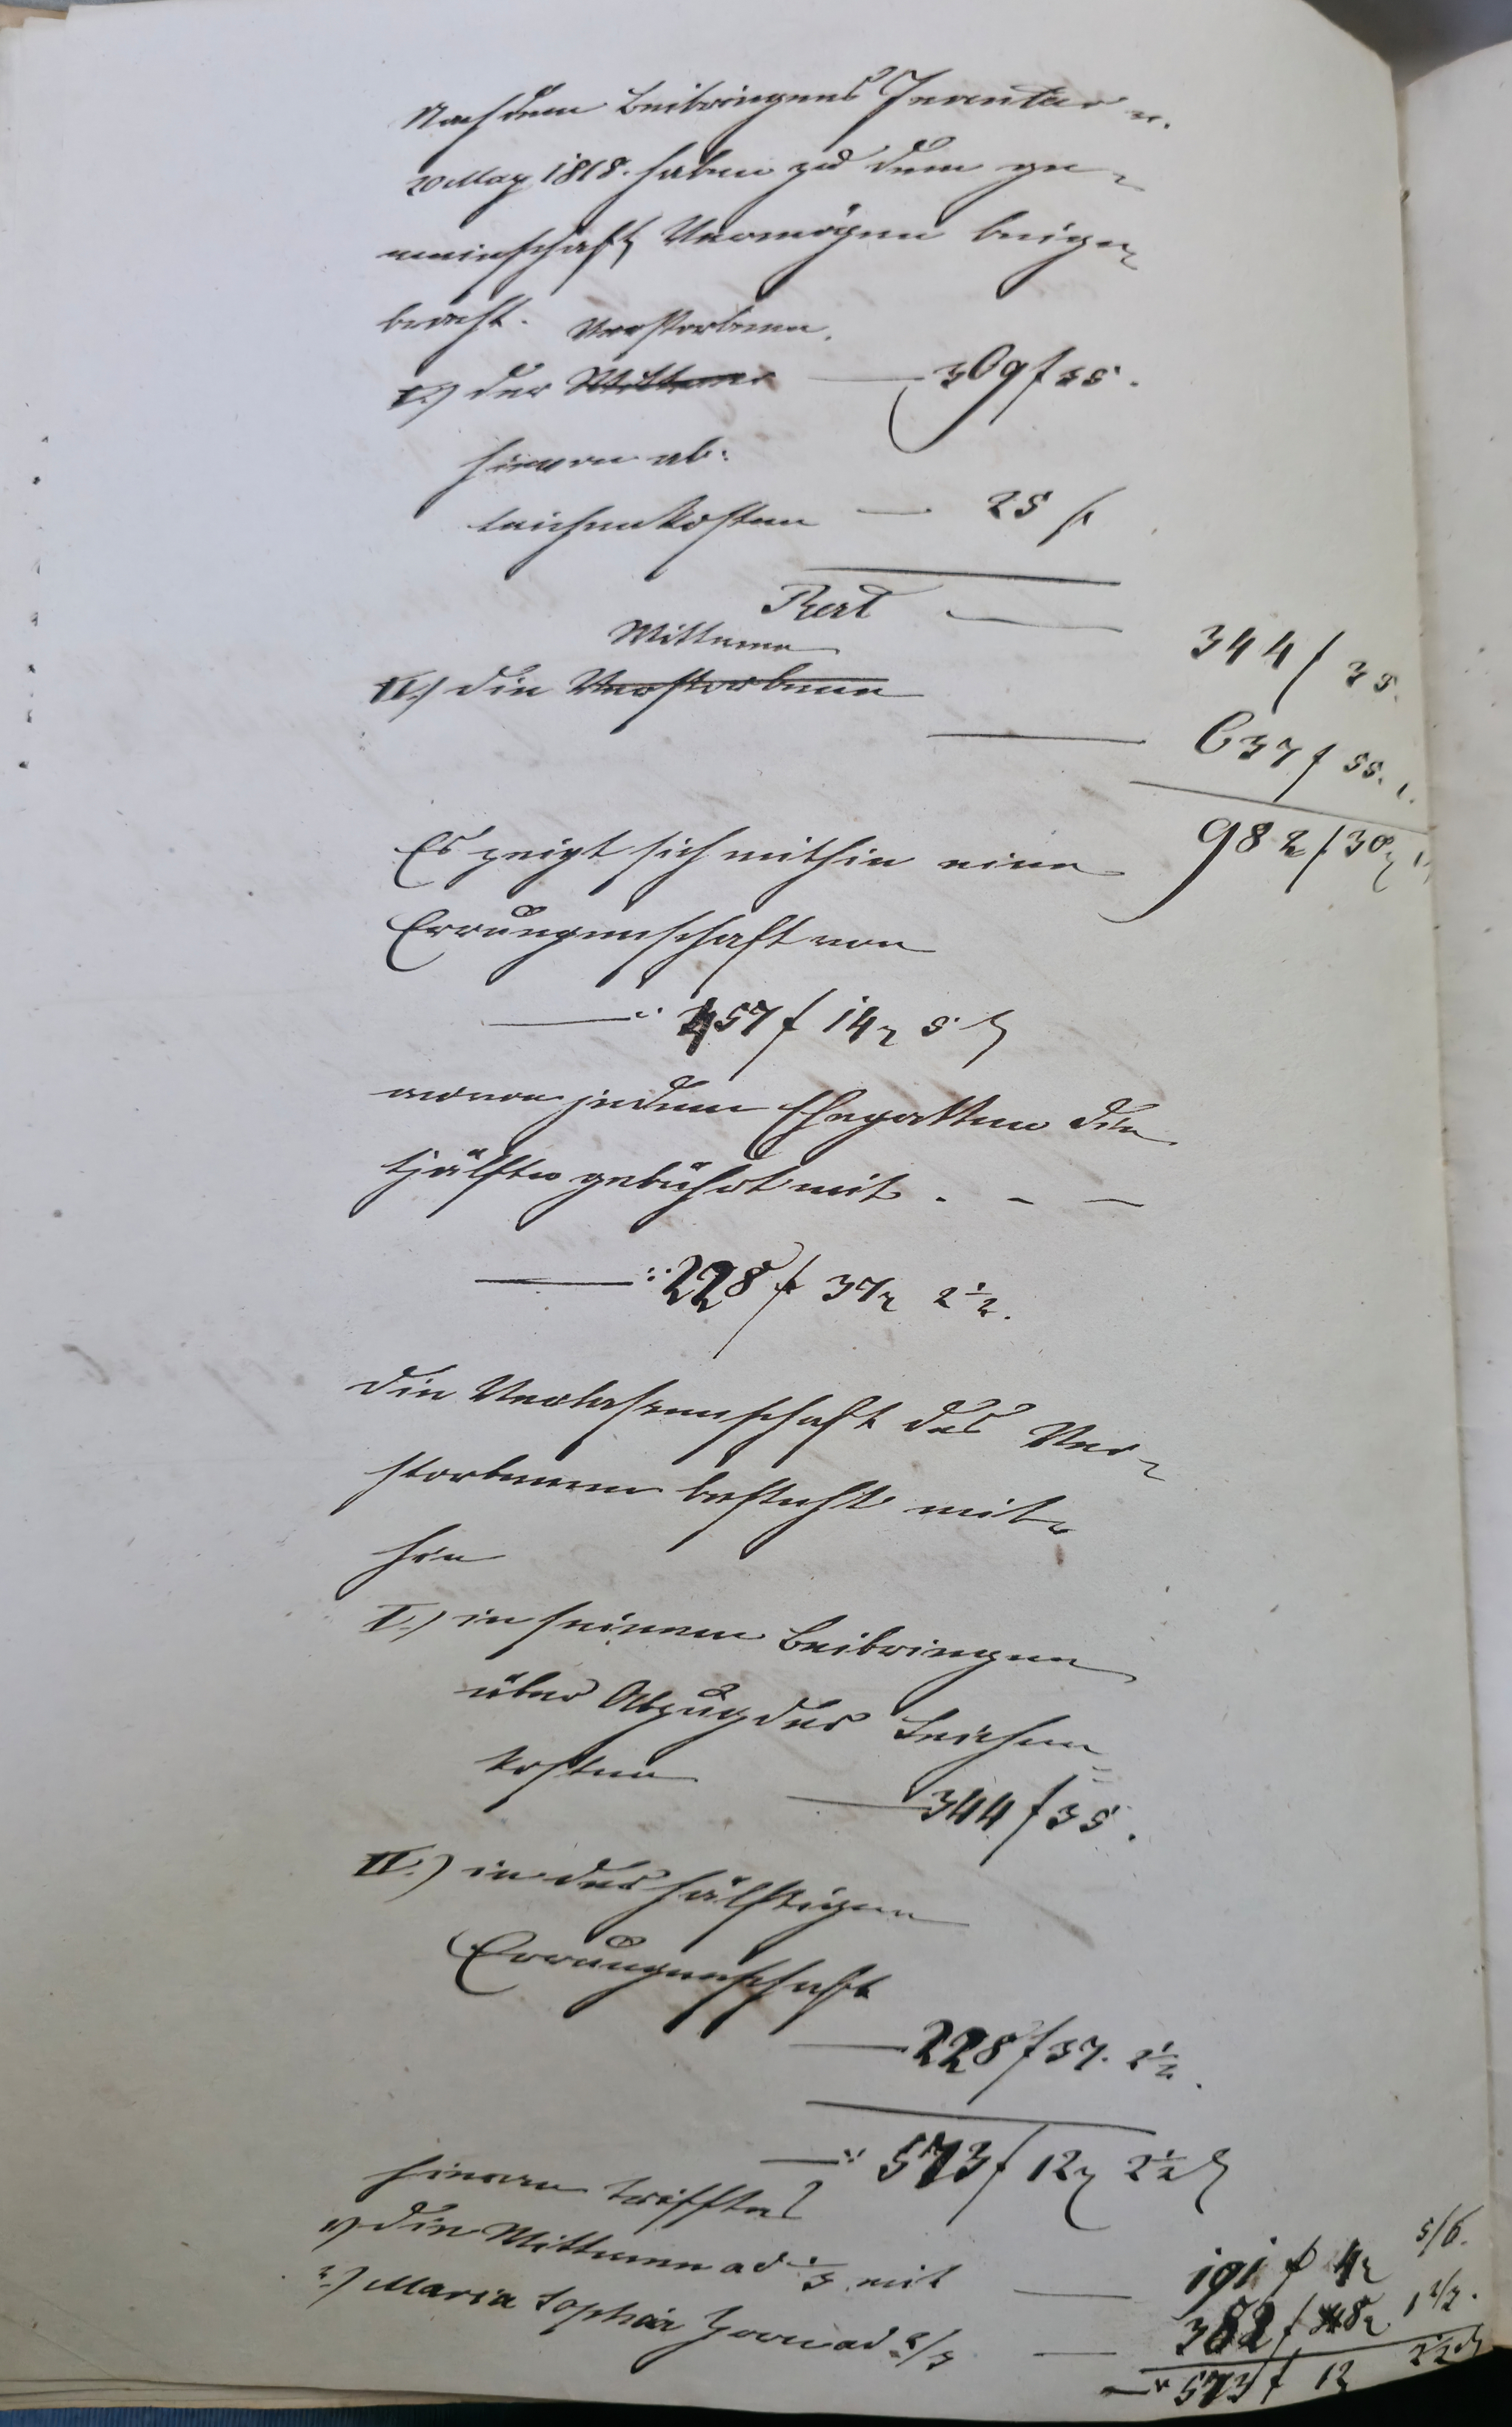 Nach dem Beibringens Inventar v.
20 May 1818. haben zu dem ge-
meinschaftl Vermögen beige-
bracht.
Verstorbene.
I.) der Wittwer — 369 f 35.
hievon ab:
Leichenkosten — 25 f
Rest — 344 f 35.
Wittwe
II.) die Verstorbene — 637 f 55. 1.
982 f 30 x 1
Es zeigt sich mithin eine
Errungenschaft von
—: 457 f 14 x 5
wovon jedem Ehegatten die
Hälfte gebührt mit . - -
—: 228 f 37 x 2 1/2.
Die Verlassenschaft des Ver-
storbenen besteht mit-
hin
I.) in seinem Beibringen
über Abzug der Leichen=
kosten — 344 f 35.
II.) in der hälftigen
Errungenschaft
— 228 f 37. 2 1/2.
—: 573 f 12 x 2 1/2
hievon trifft es
1) die Wittwe ad 1/3 mit — 191 f 4 x 5/6.
2.) Maria Sophia ad 2/3 — 382 f 8 x 1 2/3.
—: 573 f 12 2 1/2